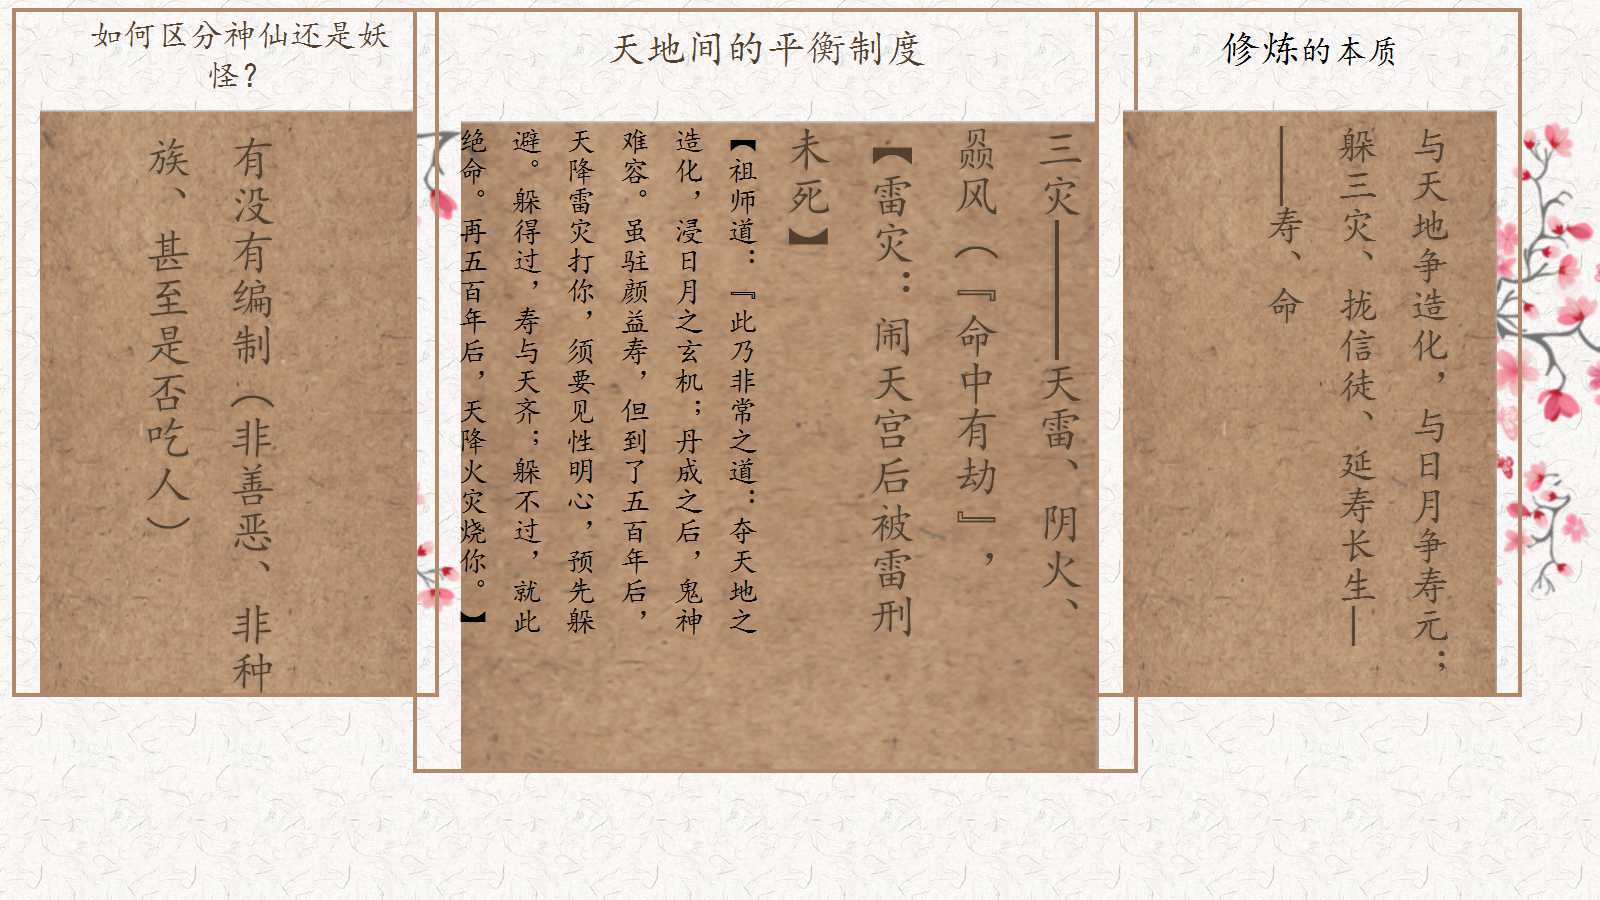 如何区分神仙还是妖
怪？
有没有编制（非善恶、非种
族、甚至是否吃人）
天地间的平衡制度
三灾——天雷、阴火、
赑风（『命中有劫』，
【雷灾：闹天宫后被雷刑
未死】
【祖师道：『此乃非常之道：夺天地之
造化，浸日月之玄机；丹成之后，鬼神
难容。虽驻颜益寿，但到了五百年后，
天降雷灾打你，须要见性明心，预先躲
避。躲得过，寿与天齐；躲不过，就此
绝命。再五百年后，天降火灾烧你。】
修炼的本质
与天地争造化，与日月争寿元；
躲三灾、拢信徒、延寿长生—
—寿、命